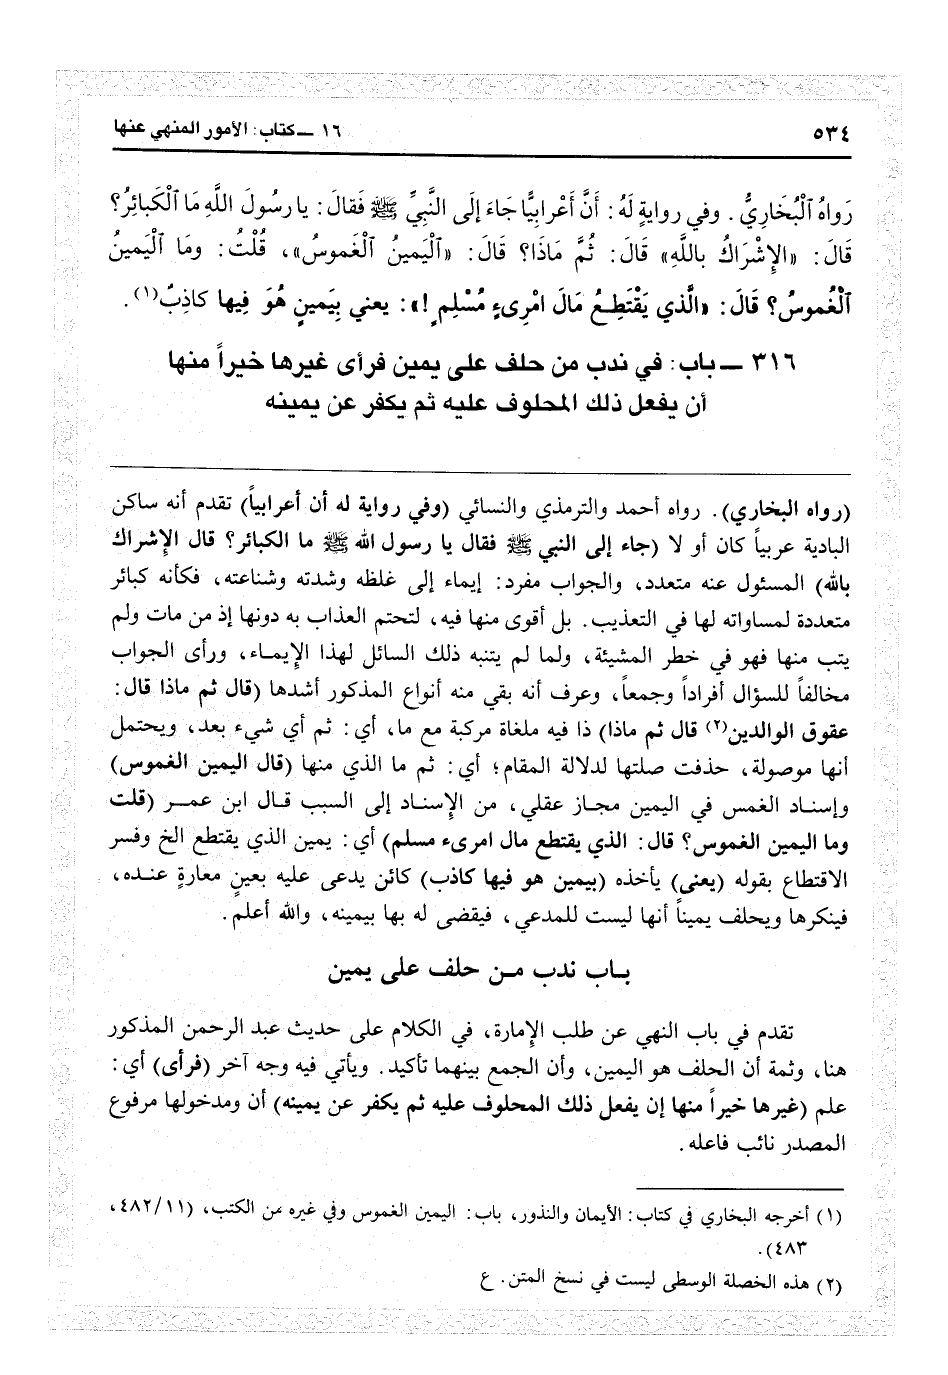 ٥٣٤
١٦ ــ كتاب: الأمور المنهي عنها
رَواهُ ٱلْبُخَارِيُّ. وفي روايةٍ لَهُ: أَنَّ أَعْرابِيًّا جَاءَ إلَى النَّبِيِّ ﷺ فَقالَ: يا رسُولَ اللَّهِ مَا ٱلْكَبائِرُ؟
قَالَ: «الإِشْرَاكُ باللَّهِ» قَالَ: ثُمَّ مَاذَا؟ قَالَ: «ٱلْيَمينُ ٱلْغَموسُ»، قُلْتُ: ومَا ٱلْيَمينُ
ٱلْغُموسُ؟ قَالَ: «الَّذي يَقْتَطِعُ مَالَ امْرِىءٍ مُسْلِمٍ!»: يعني بِيَمينٍ هُوَ فِيها كاذِبٌ(١).
٣١٦ ــ باب: في ندب من حلف على يمين فرأى غيرها خيراً منها
أن يفعل ذلك المحلوف عليه ثم يكفر عن يمينه
(رواه البخاري). رواه أحمد والترمذي والنسائي (وفي رواية له أن أعرابياً) تقدم أنه ساكن
البادية عربياً كان أو لا (جاء إلى النبي ﷺ فقال يا رسول الله ﷺ ما الكبائر؟ قال الإشراك
بالله) المسئول عنه متعدد، والجواب مفرد: إيماء إلى غلظه وشدته وشناعته، فكأنه كبائر
متعددة لمساواته لها في التعذيب. بل أقوى منها فيه، لتحتم العذاب به دونها إذ من مات ولم
يتب منها فهو في خطر المشيئة، ولما لم يتنبه ذلك السائل لهذا الإيماء، ورأى الجواب
مخالفاً للسؤال أفراداً وجمعاً، وعرف أنه بقي منه أنواع المذكور أشدها (قال ثم ماذا قال:
عقوق الوالدين(٢) قال ثم ماذا) ذا فيه ملغاة مركبة مع ما، أي: ثم أي شيء بعد، ويحتمل
أنها موصولة، حذفت صلتها لدلالة المقام؛ أي: ثم ما الذي منها (قال اليمين الغموس)
وإسناد الغمس في اليمين مجاز عقلي، من الإسناد إلى السبب قال ابن عمر (قلت
وما اليمين الغموس؟ قال: الذي يقتطع مال امرىء مسلم) أي: يمين الذي يقتطع الخ وفسر
الاقتطاع بقوله (يعني) يأخذه (بيمين هو فيها كاذب) كائن يدعى عليه بعينٍ معارةٍ عنده،
فينكرها ويحلف يميناً أنها ليست للمدعي، فيقضى له بها بيمينه، والله أعلم.
باب ندب من حلف على يمين
تقدم في باب النهي عن طلب الإمارة، في الكلام على حديث عبد الرحمن المذكور
هنا، وثمة أن الحلف هو اليمين، وأن الجمع بينهما تأكيد. ويأتي فيه وجه آخر (فرأى) أي:
علم (غيرها خيراً منها إن يفعل ذلك المحلوف عليه ثم يكفر عن يمينه) أن ومدخولها مرفوع
المصدر نائب فاعله.
(١) أخرجه البخاري في كتاب: الأيمان والنذور، باب: اليمين الغموس وفي غيره من الكتب، (٤٨٢/١١،
٤٨٣).
(٢) هذه الخصلة الوسطى ليست في نسخ المتن. ع